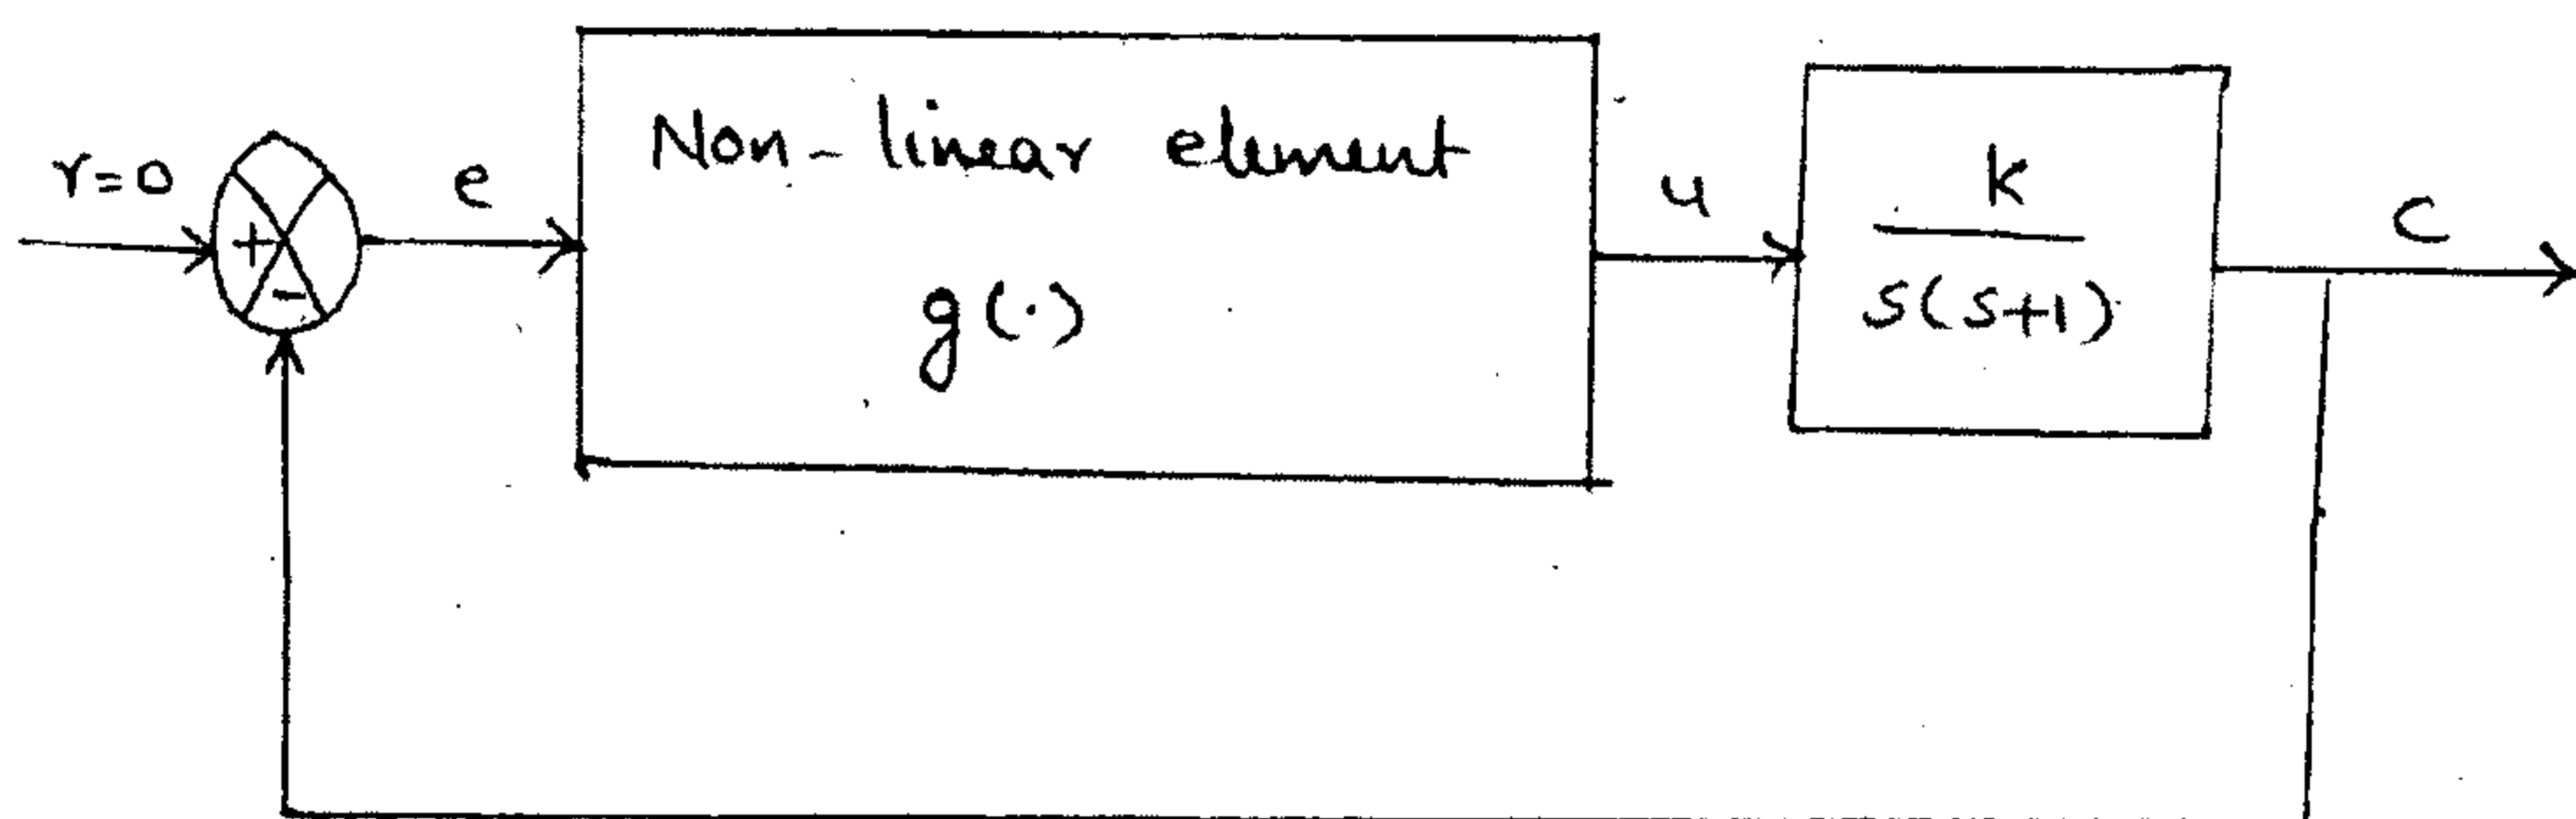 r=0
+
-
e
Non-linear element
g(·)
u
K
s(s+1)
C